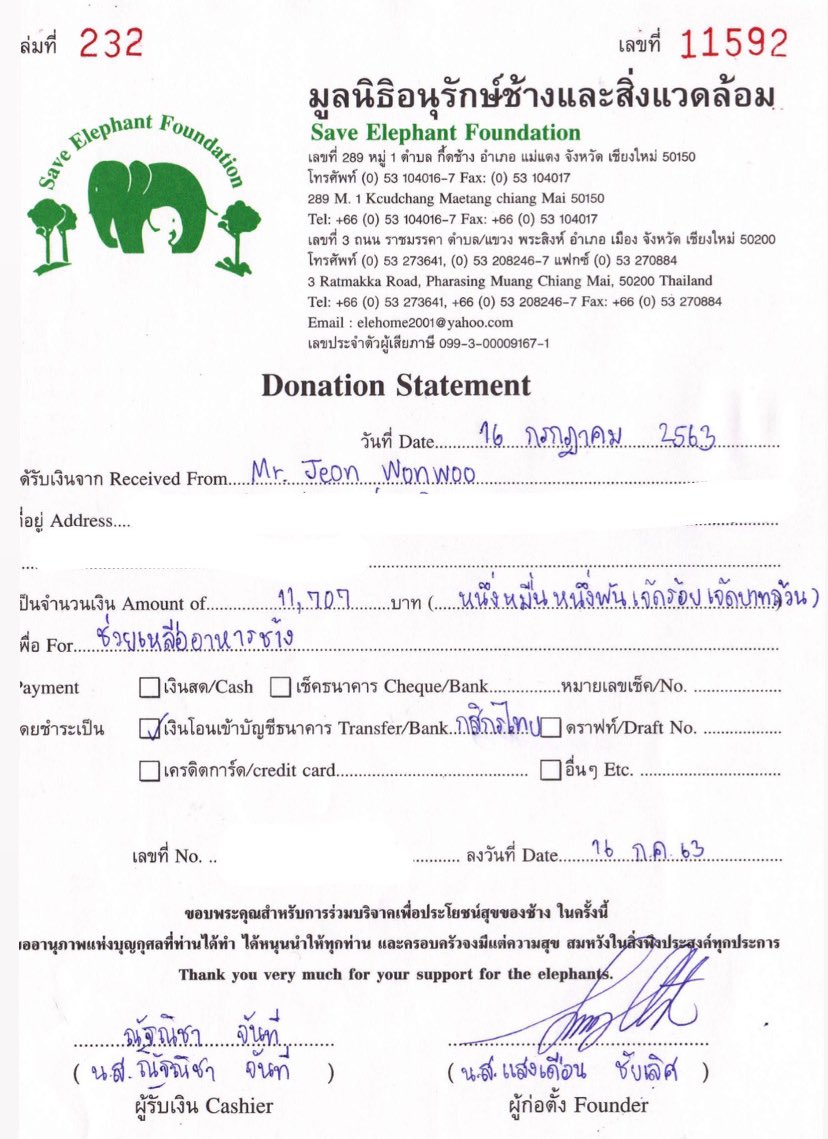 ล่มที่ 232 เลขที่ 11592
Save Elephant Foundation
มูลนิธิอนุรักษ์ช้างและสิ่งแวดล้อม
Save Elephant Foundation
เลขที่ 289 หมู่ 1 ตำบล กื้ดช้าง อำเภอ แม่แตง จังหวัด เชียงใหม่ 50150
โทรศัพท์ (0) 53 104016-7 Fax: (0) 53 104017
289 M. 1 Kcudchang Maetang chiang Mai 50150
Tel: +66 (0) 53 104016-7 Fax: +66 (0) 53 104017
เลขที่ 3 ถนน ราชมรรคา ตำบล/แขวง พระสิงห์ อำเภอ เมือง จังหวัด เชียงใหม่ 50200
โทรศัพท์ (0) 53 273641, (0) 53 208246-7 แฟกซ์ (0) 53 270884
3 Ratmakka Road, Pharasing Muang Chiang Mai, 50200 Thailand
Tel: +66 (0) 53 273641, +66 (0) 53 208246-7 Fax: +66 (0) 53 270884
Email : elehome2001@yahoo.com
เลขประจำตัวผู้เสียภาษี 099-3-00009167-1
Donation Statement
วันที่ Date 16 กรกฎาคม 2563
ด้รับเงินจาก Received From Mr. Jeon Wonwoo
ที่อยู่ Address
ป็นจำนวนเงิน Amount of 11,707 บาท ( หนึ่งหมื่นหนึ่งพันเจ็ดร้อยเจ็ดบาทถ้วน )
พื่อ For ช่วยเหลืออาหารช้าง
Payment เงินสด/Cash เช็คธนาคาร Cheque/Bank หมายเลขเช็ค/No.
ดยชำระเป็น เงินโอนเข้าบัญชีธนาคาร Transfer/Bank กสิกรไทย ดราฟท์/Draft No.
เครดิตการ์ด/credit card อื่นๆ Etc.
เลขที่ No. ลงวันที่ Date 16 ก.ค. 63
ขอบพระคุณสำหรับการร่วมบริจาคเพื่อประโยชน์สุขของช้าง ในครั้งนี้
ออานุภาพแห่งบุญกุศลที่ท่านได้ทำ ได้หนุนนำให้ทุกท่าน และครอบครัวจงมีแต่ความสุข สมหวังในสิ่งพึงประสงค์ทุกประการ
Thank you very much for your support for the elephants.
ณัฐณิชา จันที่
( น.ส. ณัฐณิชา จันที่ ) ( น.ส. แสงเดือน ชัยเลิศ )
ผู้รับเงิน Cashier ผู้ก่อตั้ง Founder